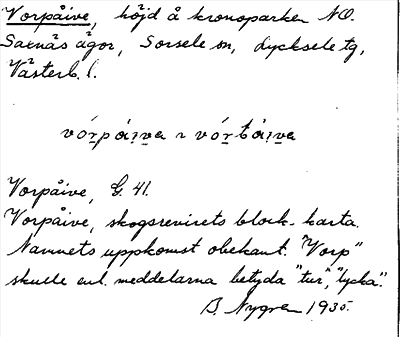 Vorpåive, höjd å kronoparken NO.
Saxnäs ägor, Sorsele sn, Lycksele tg,
Västerb. l.
vórpái̯va ~ vórtái̯va
Vorpåive, G. 41.
Vorpåive, skogsrevirets block-karta.
Namnets uppkomst obekant. "Vorp"
skulle enl. meddelarna betyda "tur", "lycka".
B. Nygren 1935.